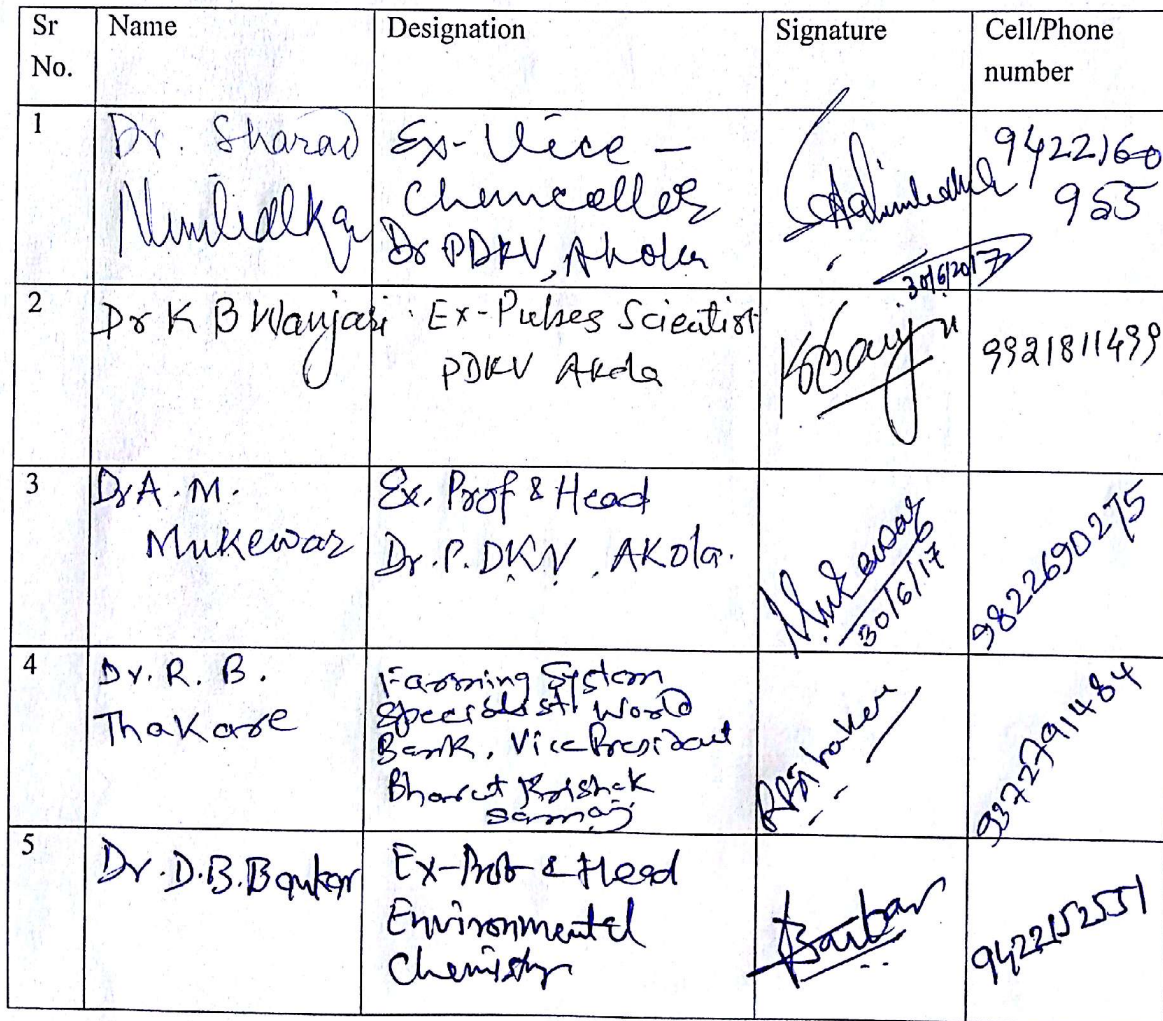 Sr No. Name Designation Signature Cell/Phone number
1 Dr. Sharad Nimbalkar Ex-Vice- Chancellor Dr PDKV, Akola 30/6/2017 9422160 955
2 Dr K B Wanjari Ex-Pulses Scientist PDKV Akola 9921811499
3 Dr A. M. Mukewar Ex. Prof & Head Dr. P. DKV. AKola. Mukewar 30/6/17 9822690275
4 Dr. R. B. Thakare Farming System Specialist World Bank, Vice President Bharat Krishak Samaj 9372791484
5 Dr. D.B. Bankar Ex-Prof & Head Environmental Chemistry 9422152551